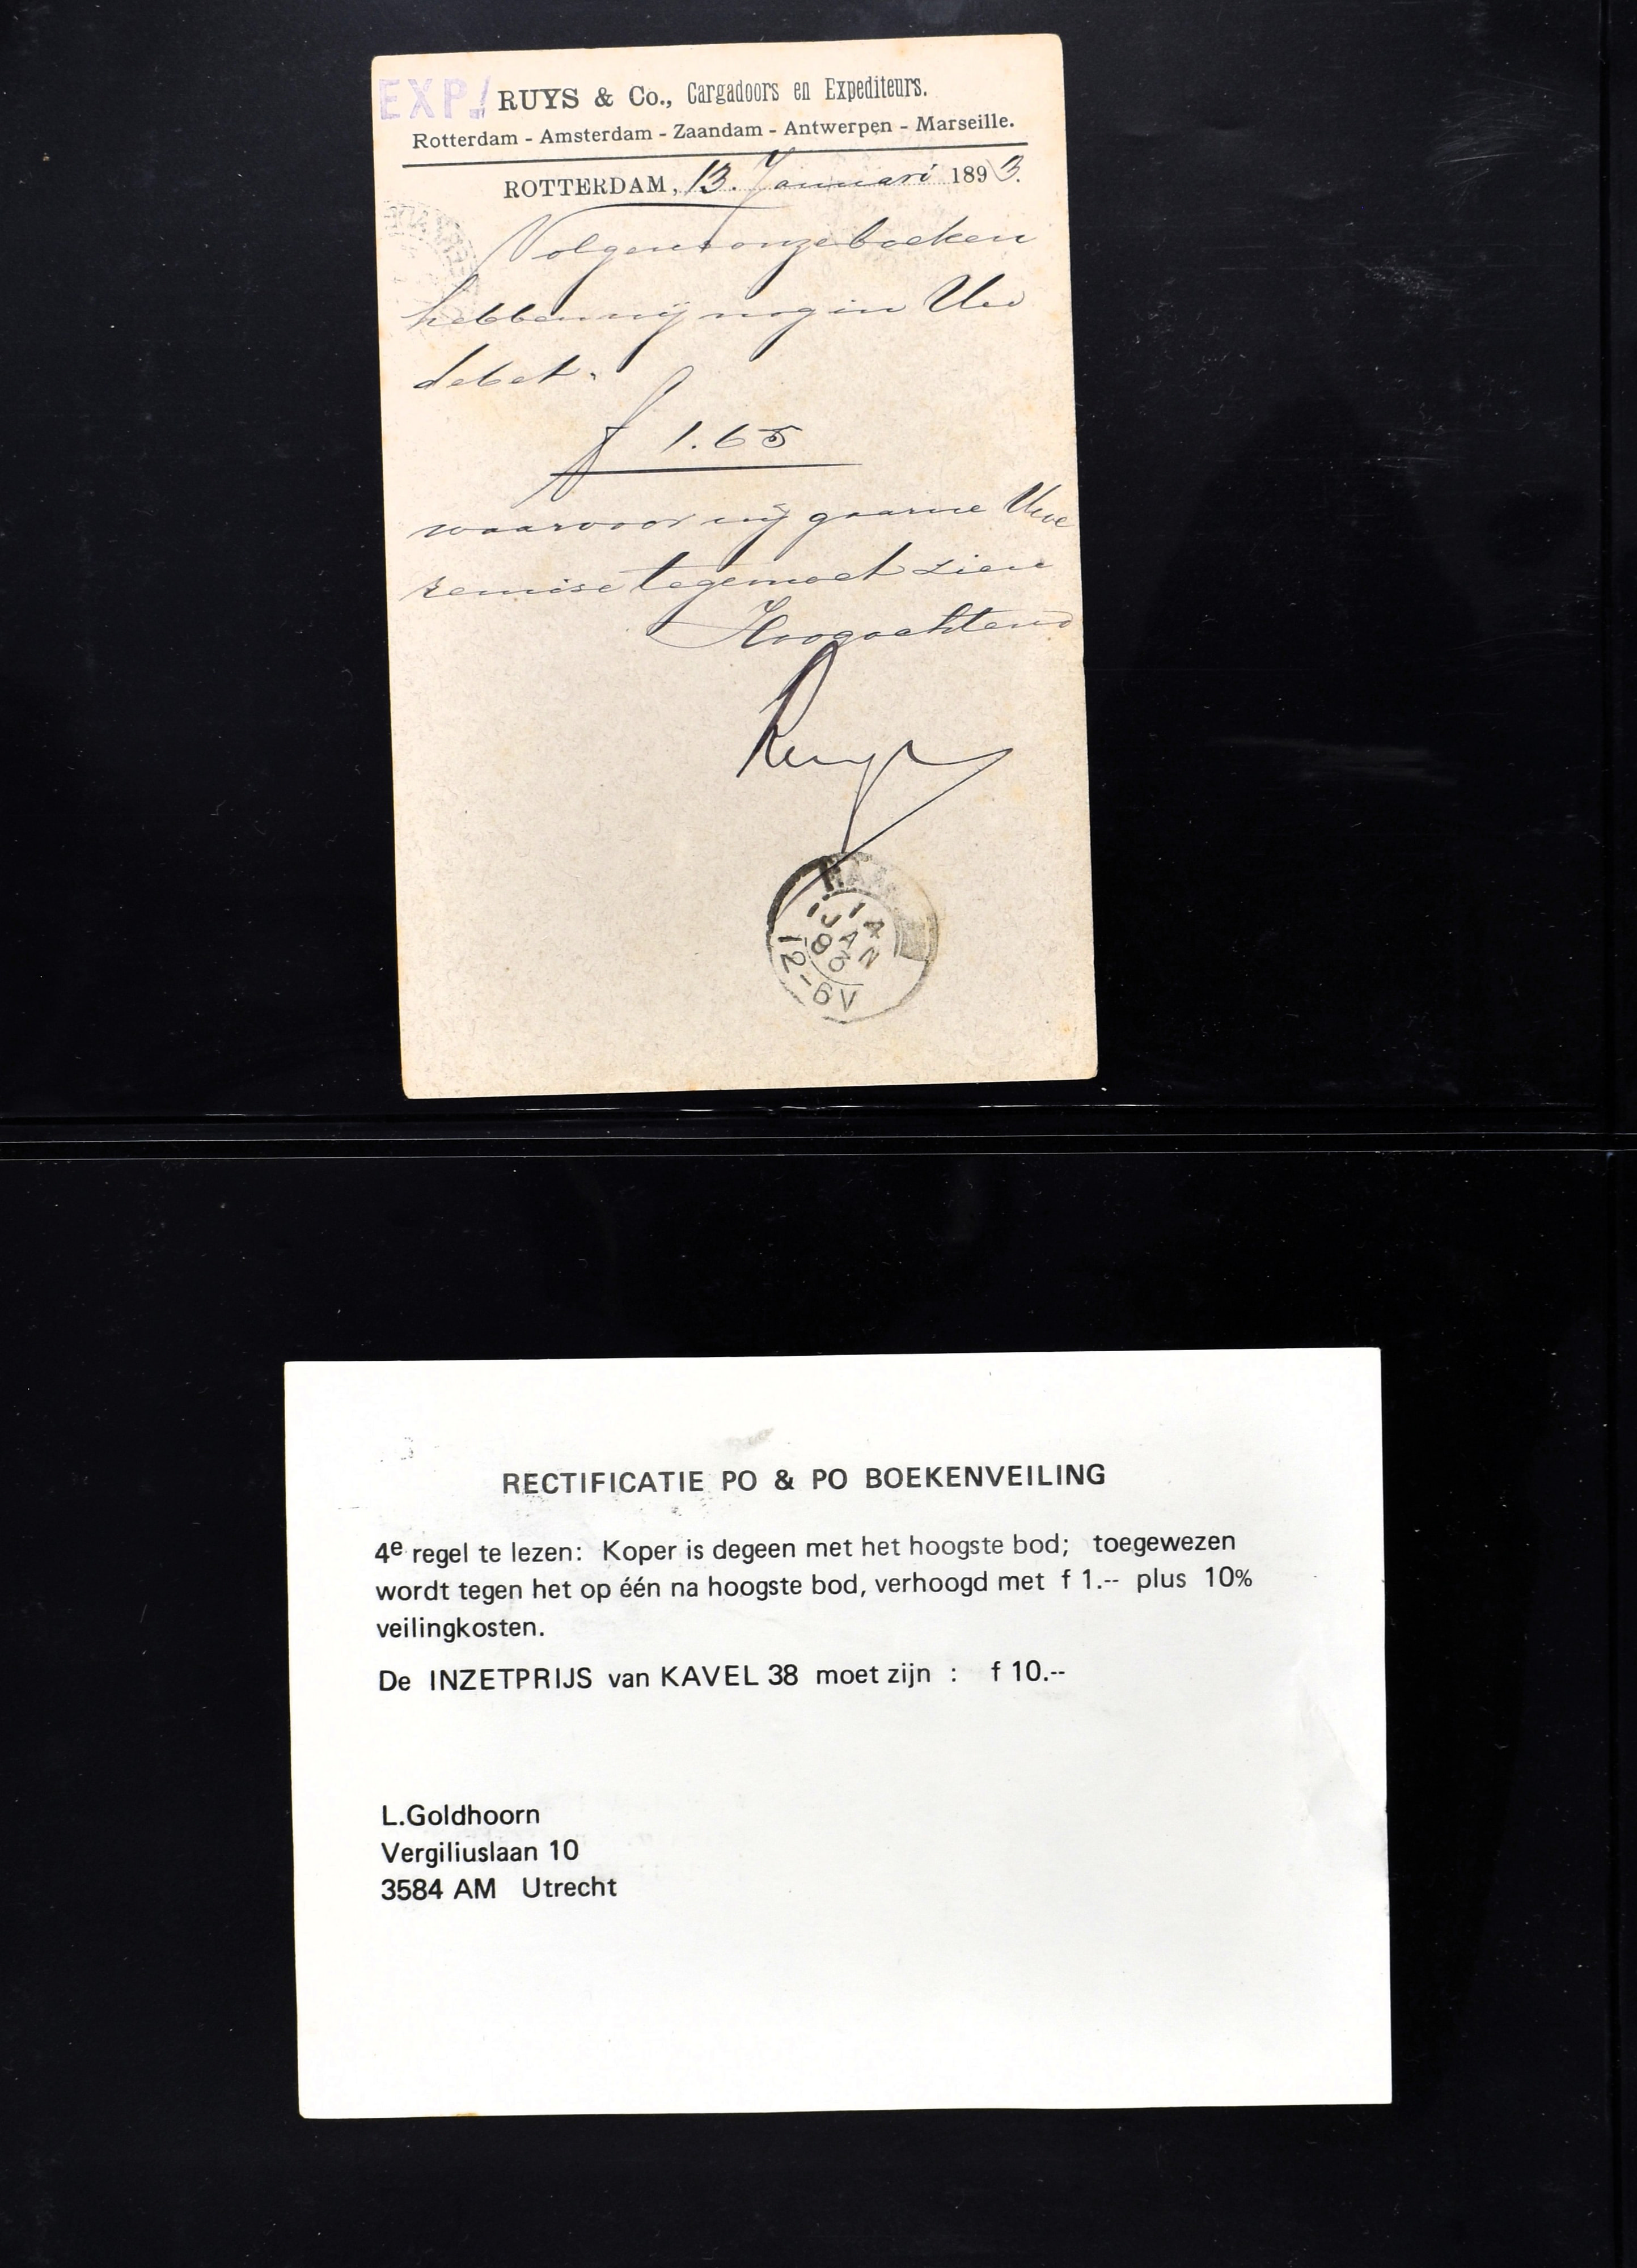 EXP./ RUYS & Co., Cargadoors en Expediteurs.
Rotterdam - Amsterdam - Zaandam - Antwerpen - Marseille.
ROTTERDAM, 13. Januari 1893.
Volgens onze boeken
hebben wij nog in Uw
debet.
f 1.65
waarvoor wij gaarne Uwe
remise tegemoet zien
Hoogachtend
Ruys
14
JAN
93
12-6V
RECTIFICATIE PO & PO BOEKENVEILING
4e regel te lezen: Koper is degeen met het hoogste bod; toegewezen
wordt tegen het op één na hoogste bod, verhoogd met f 1.-- plus 10%
veilingkosten.
De INZETPRIJS van KAVEL 38 moet zijn : f 10.--
L.Goldhoorn
Vergiliuslaan 10
3584 AM Utrecht